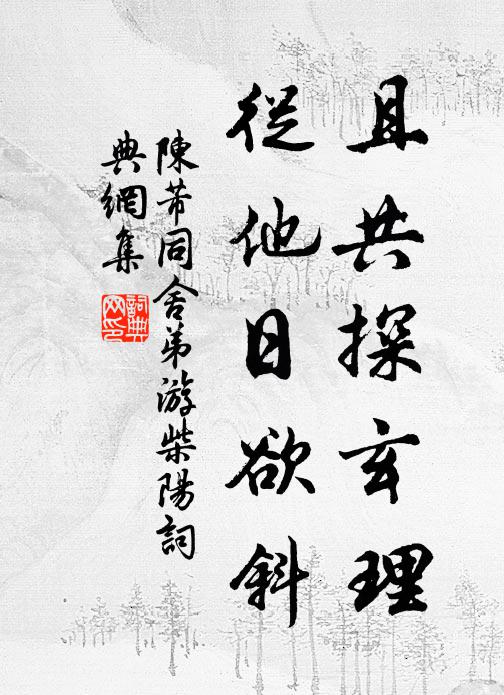 且共探玄理
從他日欲斜
陳芾同舍弟游柴陽詞
典網集
詞典
网印